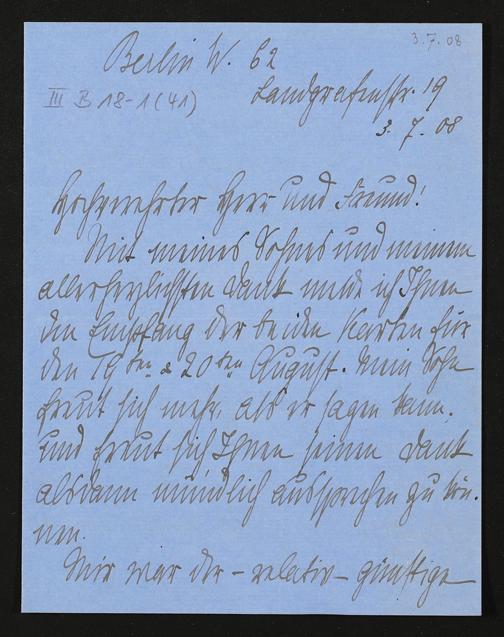 3.7.08
Berlin W. 62
III B 18-1(41)
Landgrafenstr. 19
3. 7. 08
Hochverehrter Herr und Freund!
Mit meines Sohnes und meinem
allerherzlichsten Dank melde ich Ihnen
den Empfang der beiden Karten für
den 19ten & 20ten August. Mein Sohn
freut sich mehr, als er sagen kann,
und freut sich Ihnen seinen Dank
alsdann mündlich aussprechen zu kön-
nen.
Mir war der – relativ – günstige